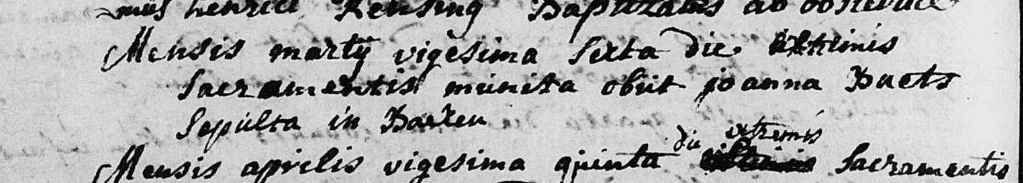 mus henrici Kensing Baptizatus ab obstetrice
Mensis martij vigesima sexta die extremis
Sacramentis munita obiit joanna Baets
Sepulta in Barten
Mensis aprilis vigesima quinta die extremis Sacramentis